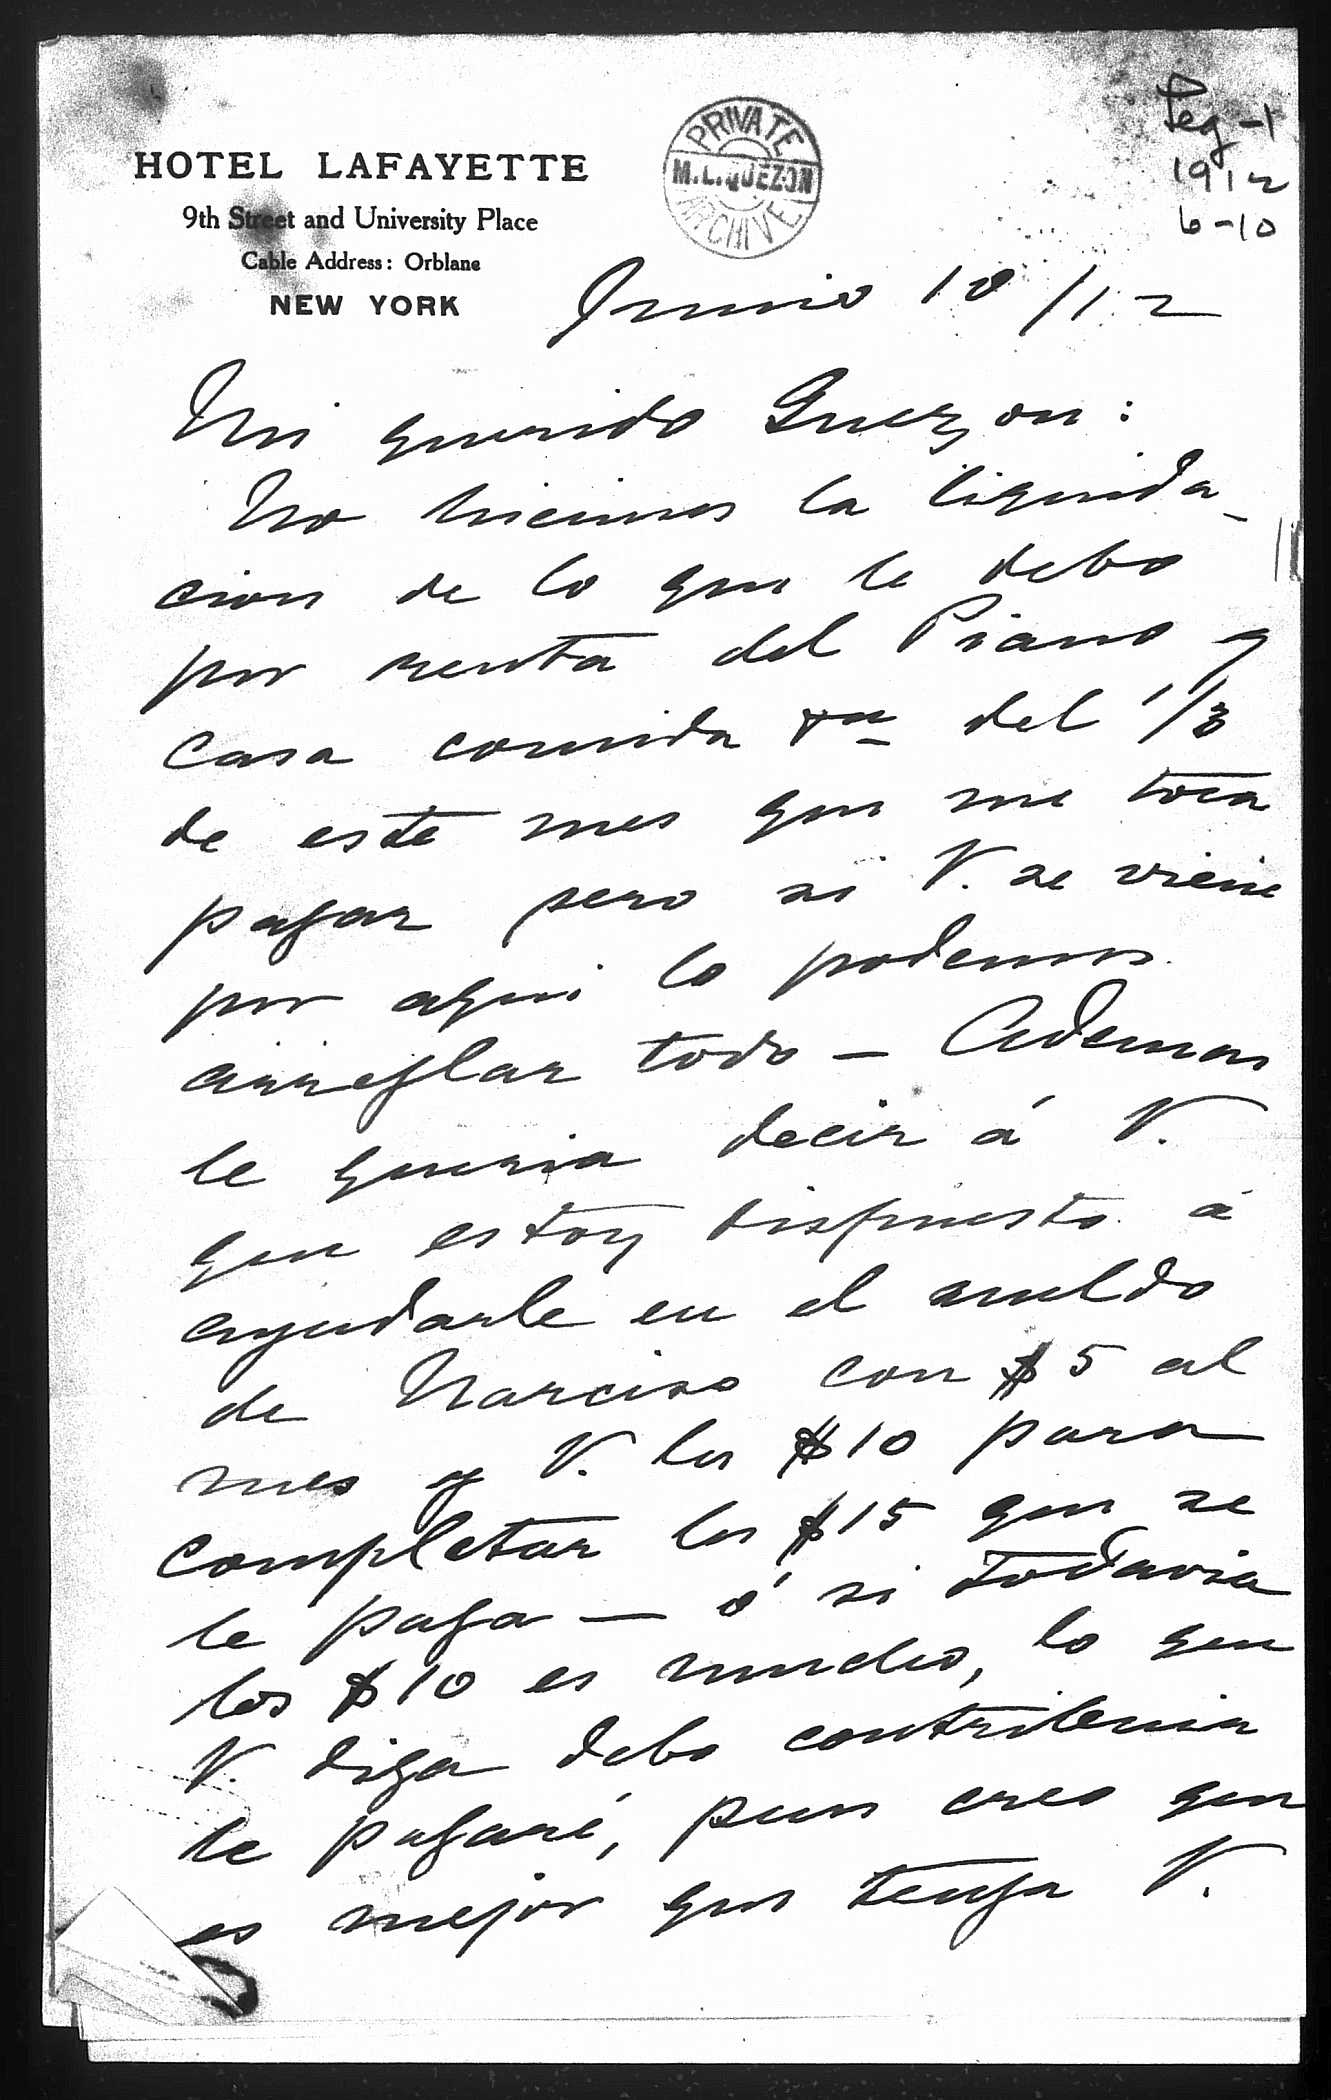 HOTEL LAFAYETTE
9th Street and University Place
Cable Address: Orblane
NEW YORK
PRIVATE
M.L.QUEZON
ARCHIVE
Peg-1
1912
6-10
Junio 10/12
Mi querido Quezon:
No hicimos la liquida-
cion de lo que le debo
por renta del Piano y
casa comida &a del 1/3
de este mes que me toca
pagar pero si V. se viene
por aqui lo podemos
arreglar todo — Ademas
le queria decir á V.
que estoy dispuesto á
ayudarle en el sueldo
de Narciso con $5 al
mes y V. los $10 para
completar los $15 que se
le paga — ó si todavia
los $10 es mucho, lo que
V. diga debo contribuir
le pagaré, pues creo que
es mejor que tenga V.